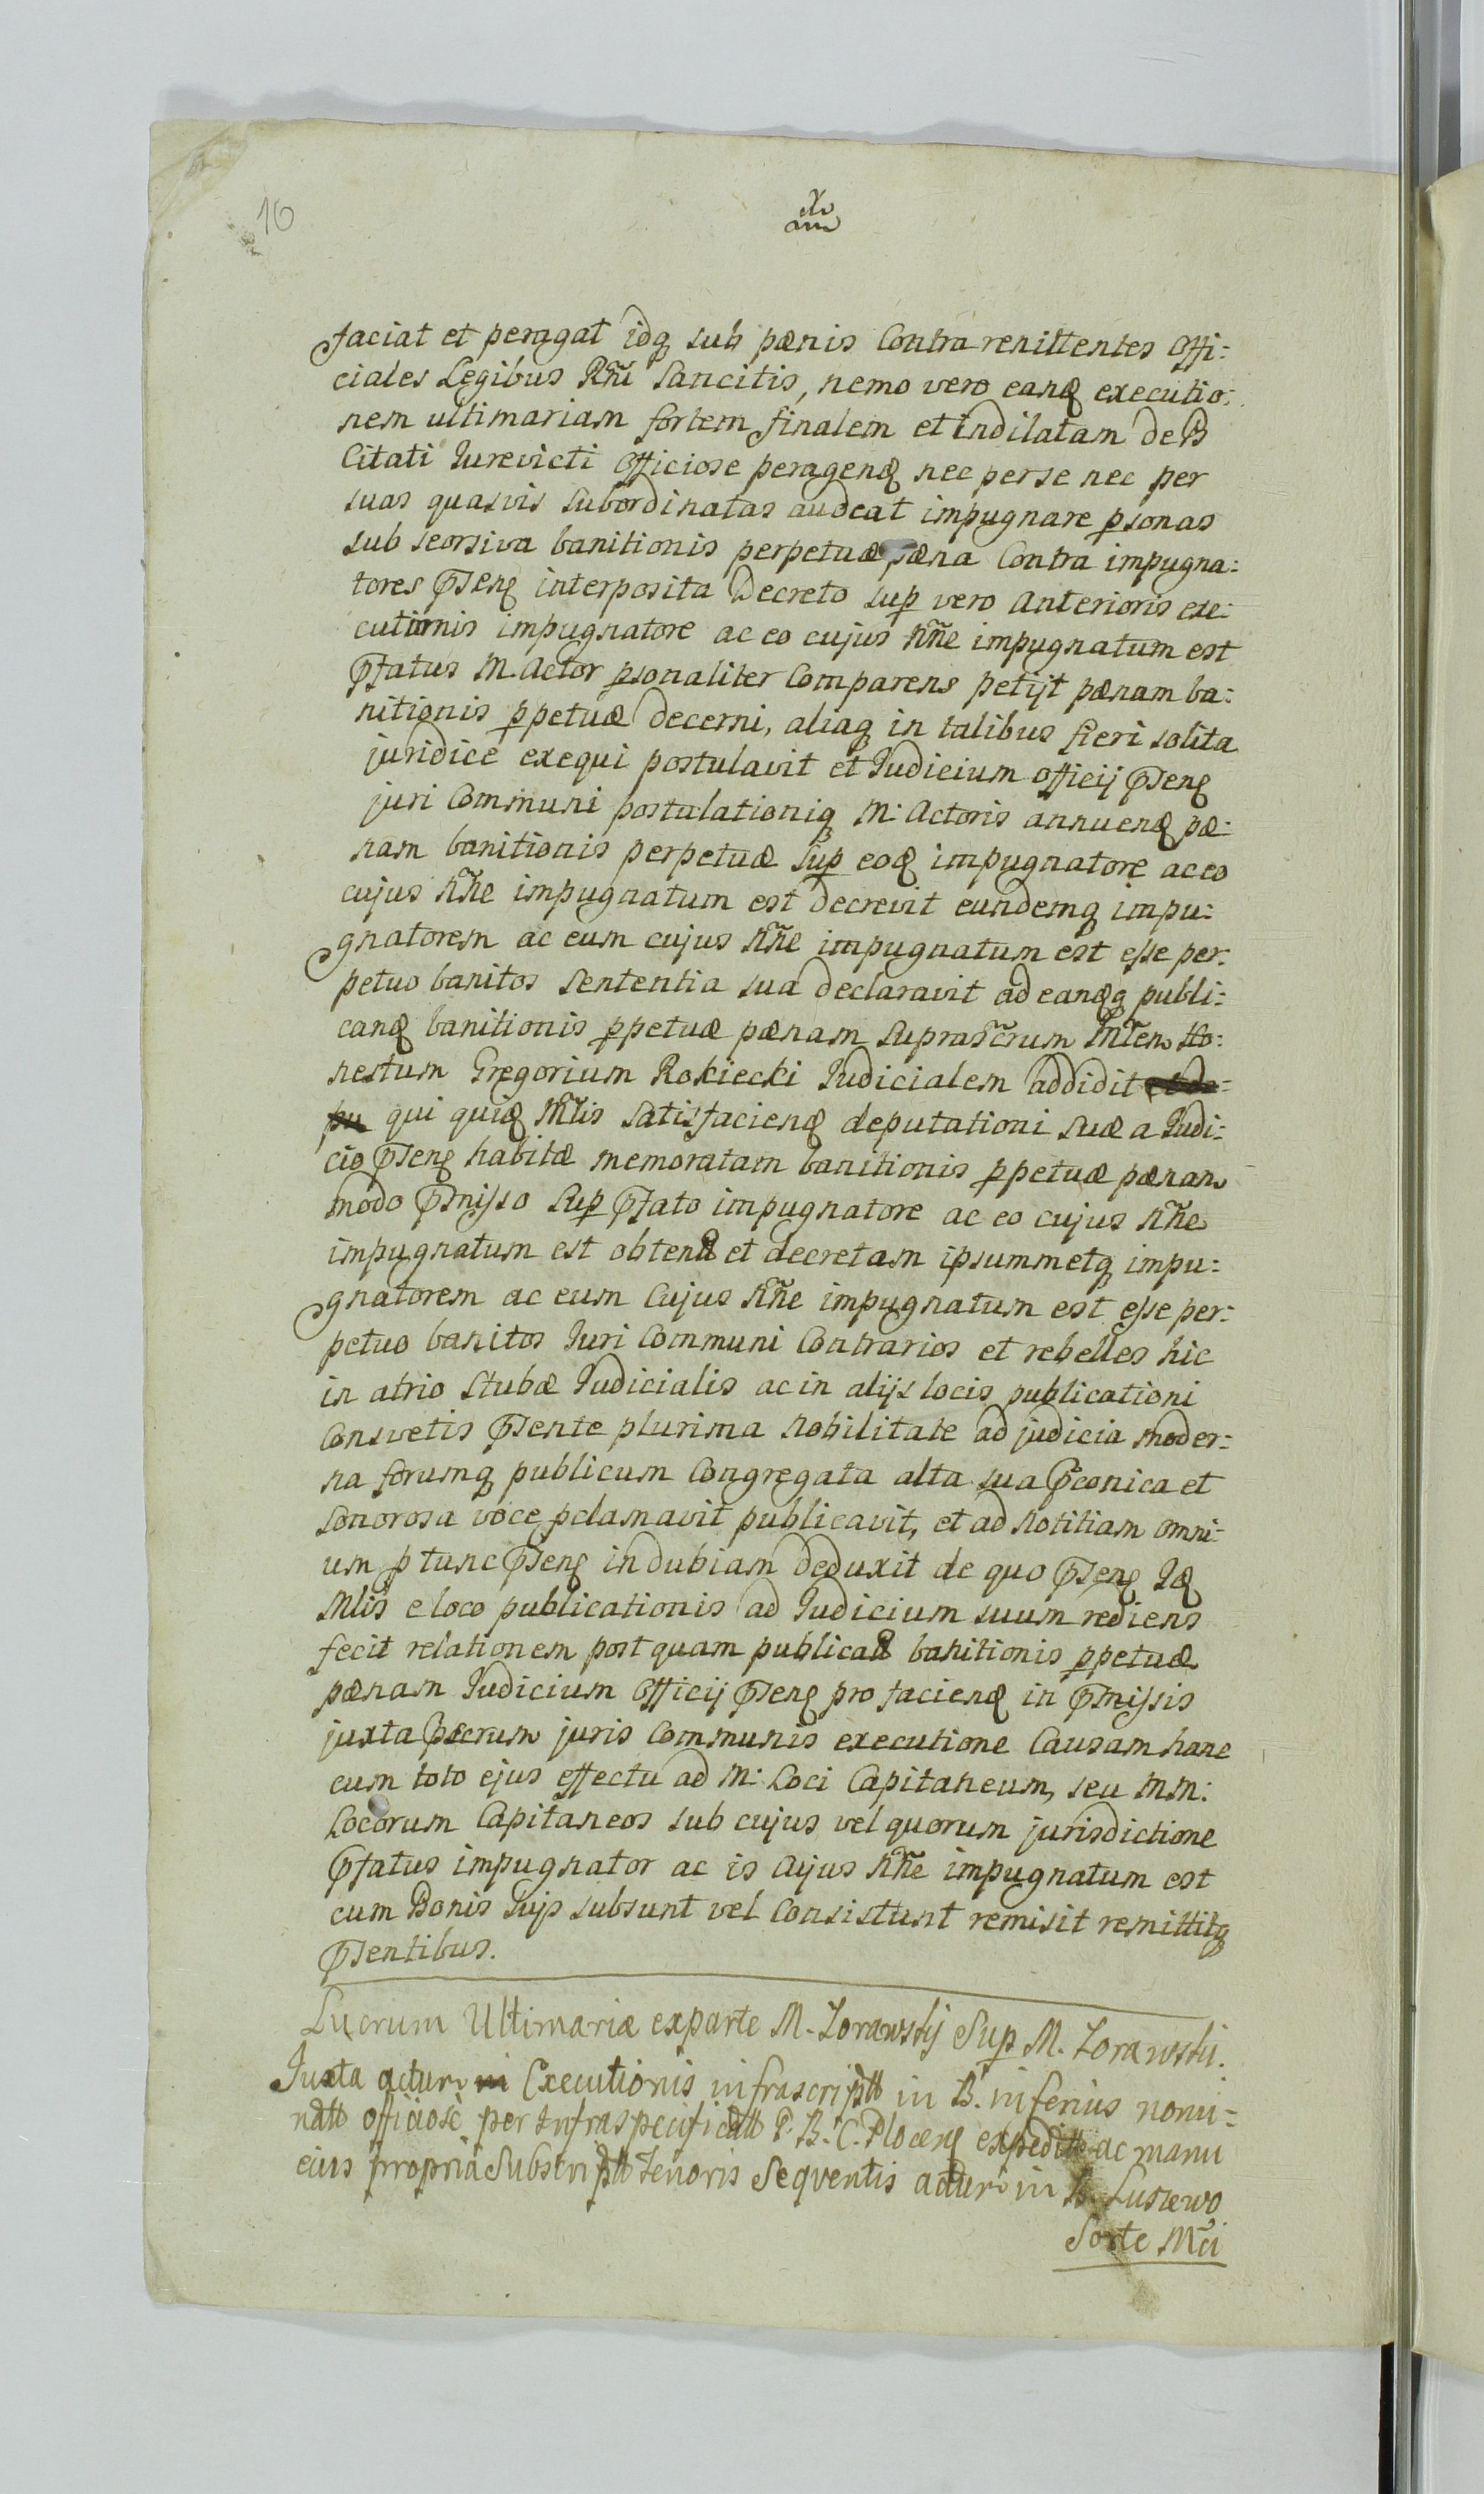 16
faciat et peragat idq sub pænis Contra renittentes Offi:
ciales Legibus Rñi Sancitis, nemo vero eanđ executio:
nem ultimariam fortem finalem et indilatam de B
Citati Jurevicti Officiose peragenđ nec per se nec per
suas quasvis subordinatas audeat impugnare psonas
sub seorsiva banitionis perpetuæ pæna Contra impugna:
tores pñsenq interposita Decreto sup vero Anterioris exe:
cutionis impugnatore ac eo cujus nñe impugnatum est
pfatus M. Actor psonaliter Comparens petijt pænam ba:
nitionis ppetuæ decerni, aliaq in talibus fieri solita
juridice exequi postulavit et Judicium officij pñsenq
juri Communi postulationiq M: Actoris annuenđ pæ:
nam banitionis perpetuæ sup eođ impugnatore ac eo
cujus nñe impugnatum est decrevit eundemq impu:
gnatorem ac eum cujus nñe impugnatum est esse per:
petuo banitos Sententia sua declaravit ad eanđq publi:
canđ banitionis ppetuæ pænam suprascrum Mlem Ho:
nestum Gregorium Rokiecki Judicialem addidit et de:
pu qui quiđ Mlis satisfacienđ deputationi suæ a Judi:
cio pñsenq habitæ memoratam banitionis ppetuæ pænam
modo pmisso sup pfato impugnatore ac eo cujus nñe
impugnatum est obtentt et decretam ipsummetq impu:
gnatorem ac eum Cujus nñe impugnatum est esse per:
petuo banitos Juri Communi Contrarios et rebelles hic
in atrio Stubæ Judicialis ac in alijs locis publicationi
Consvetis psente plurima Nobilitate ad judicia moder:
na forumq publicum Congregata alta sua pconica et
sonorosa voce pclamavit publicavit, et ad Notitiam omni:
um p tunc psenq indubiam deduxit de quo psenq Iđ
Mlis e loco publicationis ad Judicium suum rediens
fecit relationem post quam publicatt banitionis ppetuæ
pænam Judicium Officij psenq pro facienđ in pmissis
juxta pscrum juris Communis executione Causam hanc
cum toto ejus effectu ad M: Loci Capitaneum, seu MM:
Locorum Capitaneos sub cujus vel quorum jurisdictione
pfatus impugnator ac is cujus nñe impugnatum est
cum Bonis sujs subsunt vel Consistunt remisit remittitq
psentibus.
Lucrum Ultimariæ exparte M. Zorawskij Sup M. Zorawski.
Juxta actum Executionis infrascriptt in B. inferius nomi=
natt officiosè per Infraspecificatt P. B. C. Plocenq expeditt ac manu
eius propria Subscriptt Tenoris Seqventis actum in B. Luszewo
Sorte Mci